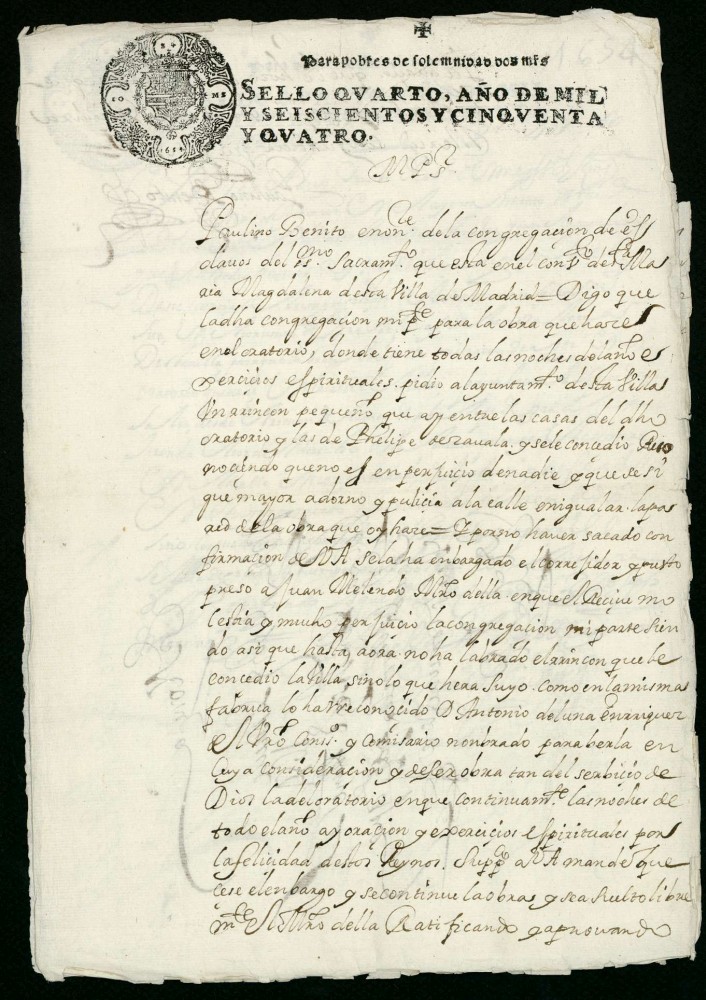 ✠
Para pobres de solemnidad dos mrs
SELLO QVARTO, AÑO DE MIL
Y SEISCIENTOS Y CINQVENTA
Y QVATRO.
M P S.r
Paulino Benito en on.e de la congregacion de es
clavos del ss.mo Sacram.to que esta en el conv.to de s.ta Ma
ria Magdalena desta Villa de Madrid = Digo que
la dha congregacion mi p.te para la obra que hace
en el oratorio, donde tiene todas las noches del año e
xercicios espirituales. pidio al ayuntam.to desta Villa
Un rincon pequeño que ay entre las casas del dho
oratorio y las de Phelipe de Zavala. y se le concedio Reco
nociendo que no es en perjuicio de nadie y que se si
gue mayor adorno y pulicia a la calle en igualar la pa
red de la obra que oy hace = Y por no haver sacado con
firmacion de VA se la ha enbargado el corregidor y puesto
preso a Juan Melendo M.ro della. en que el Recive mo
lestia y mucho perjuicio la congregacion mi parte sien
do asi que hasta aora no ha labrado el rrincon que le
concedio la Villa sino lo que hera suyo. como en la misma
fabrica lo ha rreconocido D Antonio de luna Enrriquez
del Vro Cons.o y Comisario nonbrado para berla en
Cuya consideracion y de ser obra tan del serbicio de
Dios la del oratorio en que continuam.te las noches de
todo el año ay oracion y exercicios espirituales por
la felicidad destos Reynos. Supp.co a VA mande que
cese el enbargo y se continue la obra y sea suelto libre
m.te el M.ro della Ratificando y aprouando